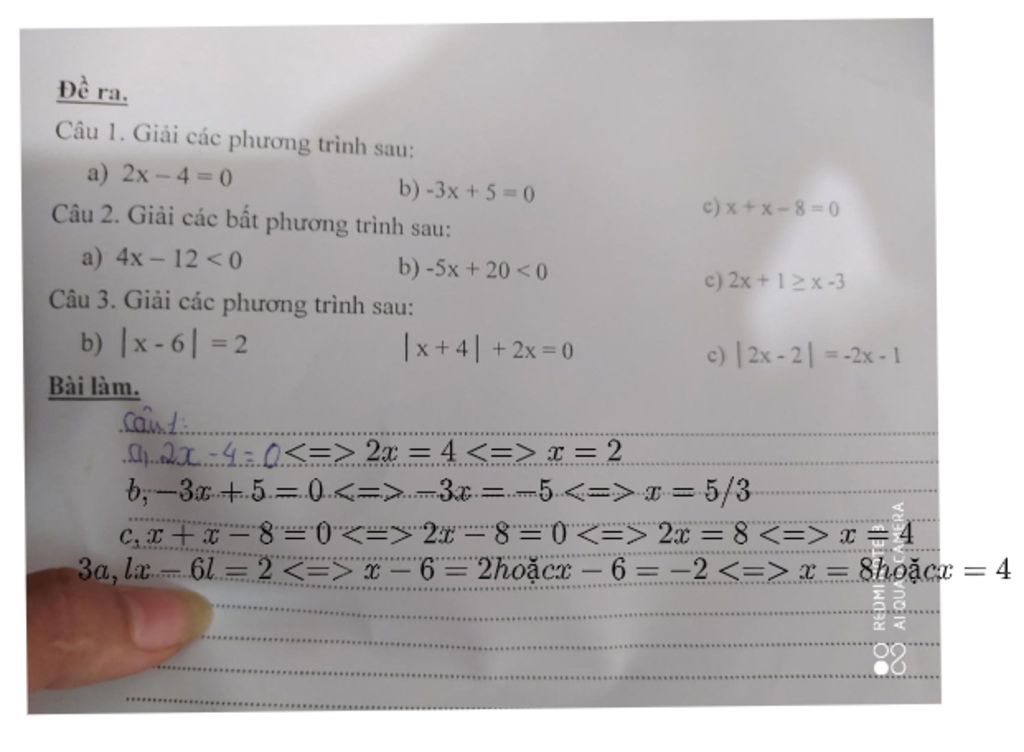 Đề ra.
Câu 1. Giải các phương trình sau:
a) 2x – 4 = 0 b) -3x + 5 = 0 c) x + x – 8 = 0
Câu 2. Giải các bất phương trình sau:
a) 4x – 12 < 0 b) -5x + 20 < 0 c) 2x + 1 ≥ x -3
Câu 3. Giải các phương trình sau:
b) |x - 6| = 2 |x + 4| + 2x = 0 c) |2x - 2| = -2x - 1
Bài làm.
Câu 1:
a, 2x - 4 = 0 <=> 2x = 4 <=> x = 2
b, −3x + 5 = 0 <=> −3x = −5 <=> x = 5/3
c, x + x − 8 = 0 <=> 2x − 8 = 0 <=> 2x = 8 <=> x = 4
3a, lx − 6l = 2 <=> x − 6 = 2hoặcx − 6 = −2 <=> x = 8hoặcx = 4
REDMI NOTE 8
AI QUAD CAMERA